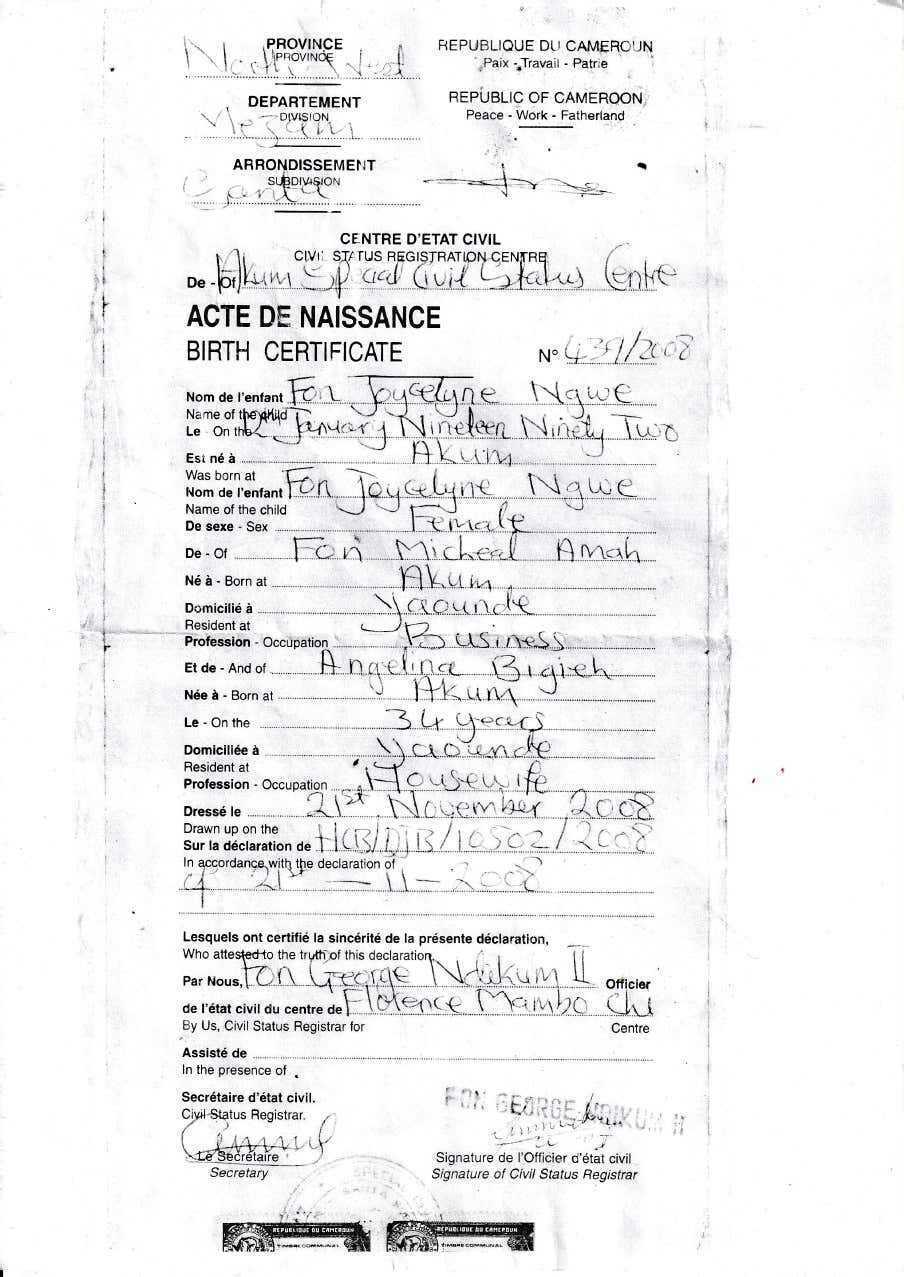 PROVINCE
PROVINCE
North West
REPUBLIQUE DU CAMEROUN
Paix - Travail - Patrie
DEPARTEMENT
DIVISION
Mezam
REPUBLIC OF CAMEROON
Peace - Work - Fatherland
ARRONDISSEMENT
SUBDIVISION
Santa
CENTRE D'ETAT CIVIL
CIVIL STATUS REGISTRATION CENTRE
De - Of Akum Special Civil Status Centre
ACTE DE NAISSANCE
BIRTH CERTIFICATE N° 439/2008
Nom de l'enfant Fon Joycelyne Ngwe
Name of the child
Le - On the 2nd January Nineteen Ninety Two
Est né à Akum
Was born at
Nom de l'enfant Fon Joycelyne Ngwe
Name of the child
De sexe - Sex Female
De - Of Fon Micheal Amah
Né à - Born at Akum
Domicilié à Yaounde
Resident at
Profession - Occupation Business
Et de - And of Angelina Bigieh
Née à - Born at Akum
Le - On the 34 years
Domiciliée à Yaounde
Resident at
Profession - Occupation Housewife
Dressé le 21st November 2008
Drawn up on the
Sur la déclaration de HCB/DJB/10502/2008
In accordance with the declaration of
of 21st - 11 - 2008
Lesquels ont certifié la sincérité de la présente déclaration,
Who attested to the truth of this declaration
Par Nous, Fon George Ndikum II Officier
de l'état civil du centre de Florence Mambo Chi
By Us, Civil Status Registrar for Centre
Assisté de
In the presence of
Secrétaire d'état civil.
Civil Status Registrar.
FON GEORGE NDIKUM II
Le Secrétaire
Secretary
Signature de l'Officier d'état civil
Signature of Civil Status Registrar
SPECIAL
REPUBLIQUE DU CAMEROUN
TIMBRE COMMUNAL
REPUBLIQUE DU CAMEROUN
TIMBRE COMMUNAL